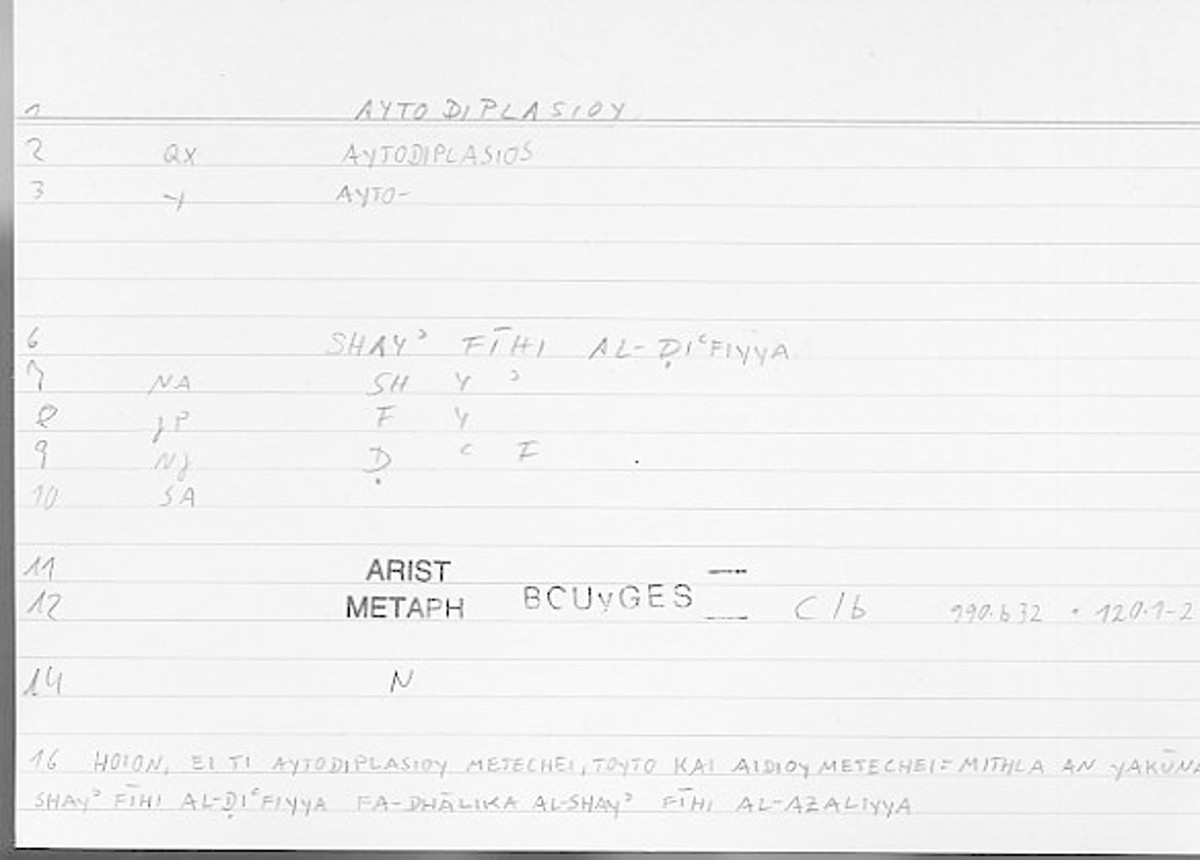 1 AYTODIPLASIOY
2 QX AYTODIPLASIOS
3 AYTO-
6 SHAYʾ FĪHI AL-ḌIʿFIYYA
7 NA SH Y ʾ
8 jP F Y
9 Nj Ḍ ʿ F
10 SA
11 ARIST
12 METAPH BCUyGES C1b 990.b32 • 120.1-2
14 N
16 HOION, EI TI AYTODIPLASIOY METECHEI, TOYTO KAI AIDIOY METECHEI = MITHLA AN YAKŪNA
SHAYʾ FĪHI AL-ḌIʿFIYYA FA-DHĀLIKA AL-SHAYʾ FĪHI AL-AZALIYYA